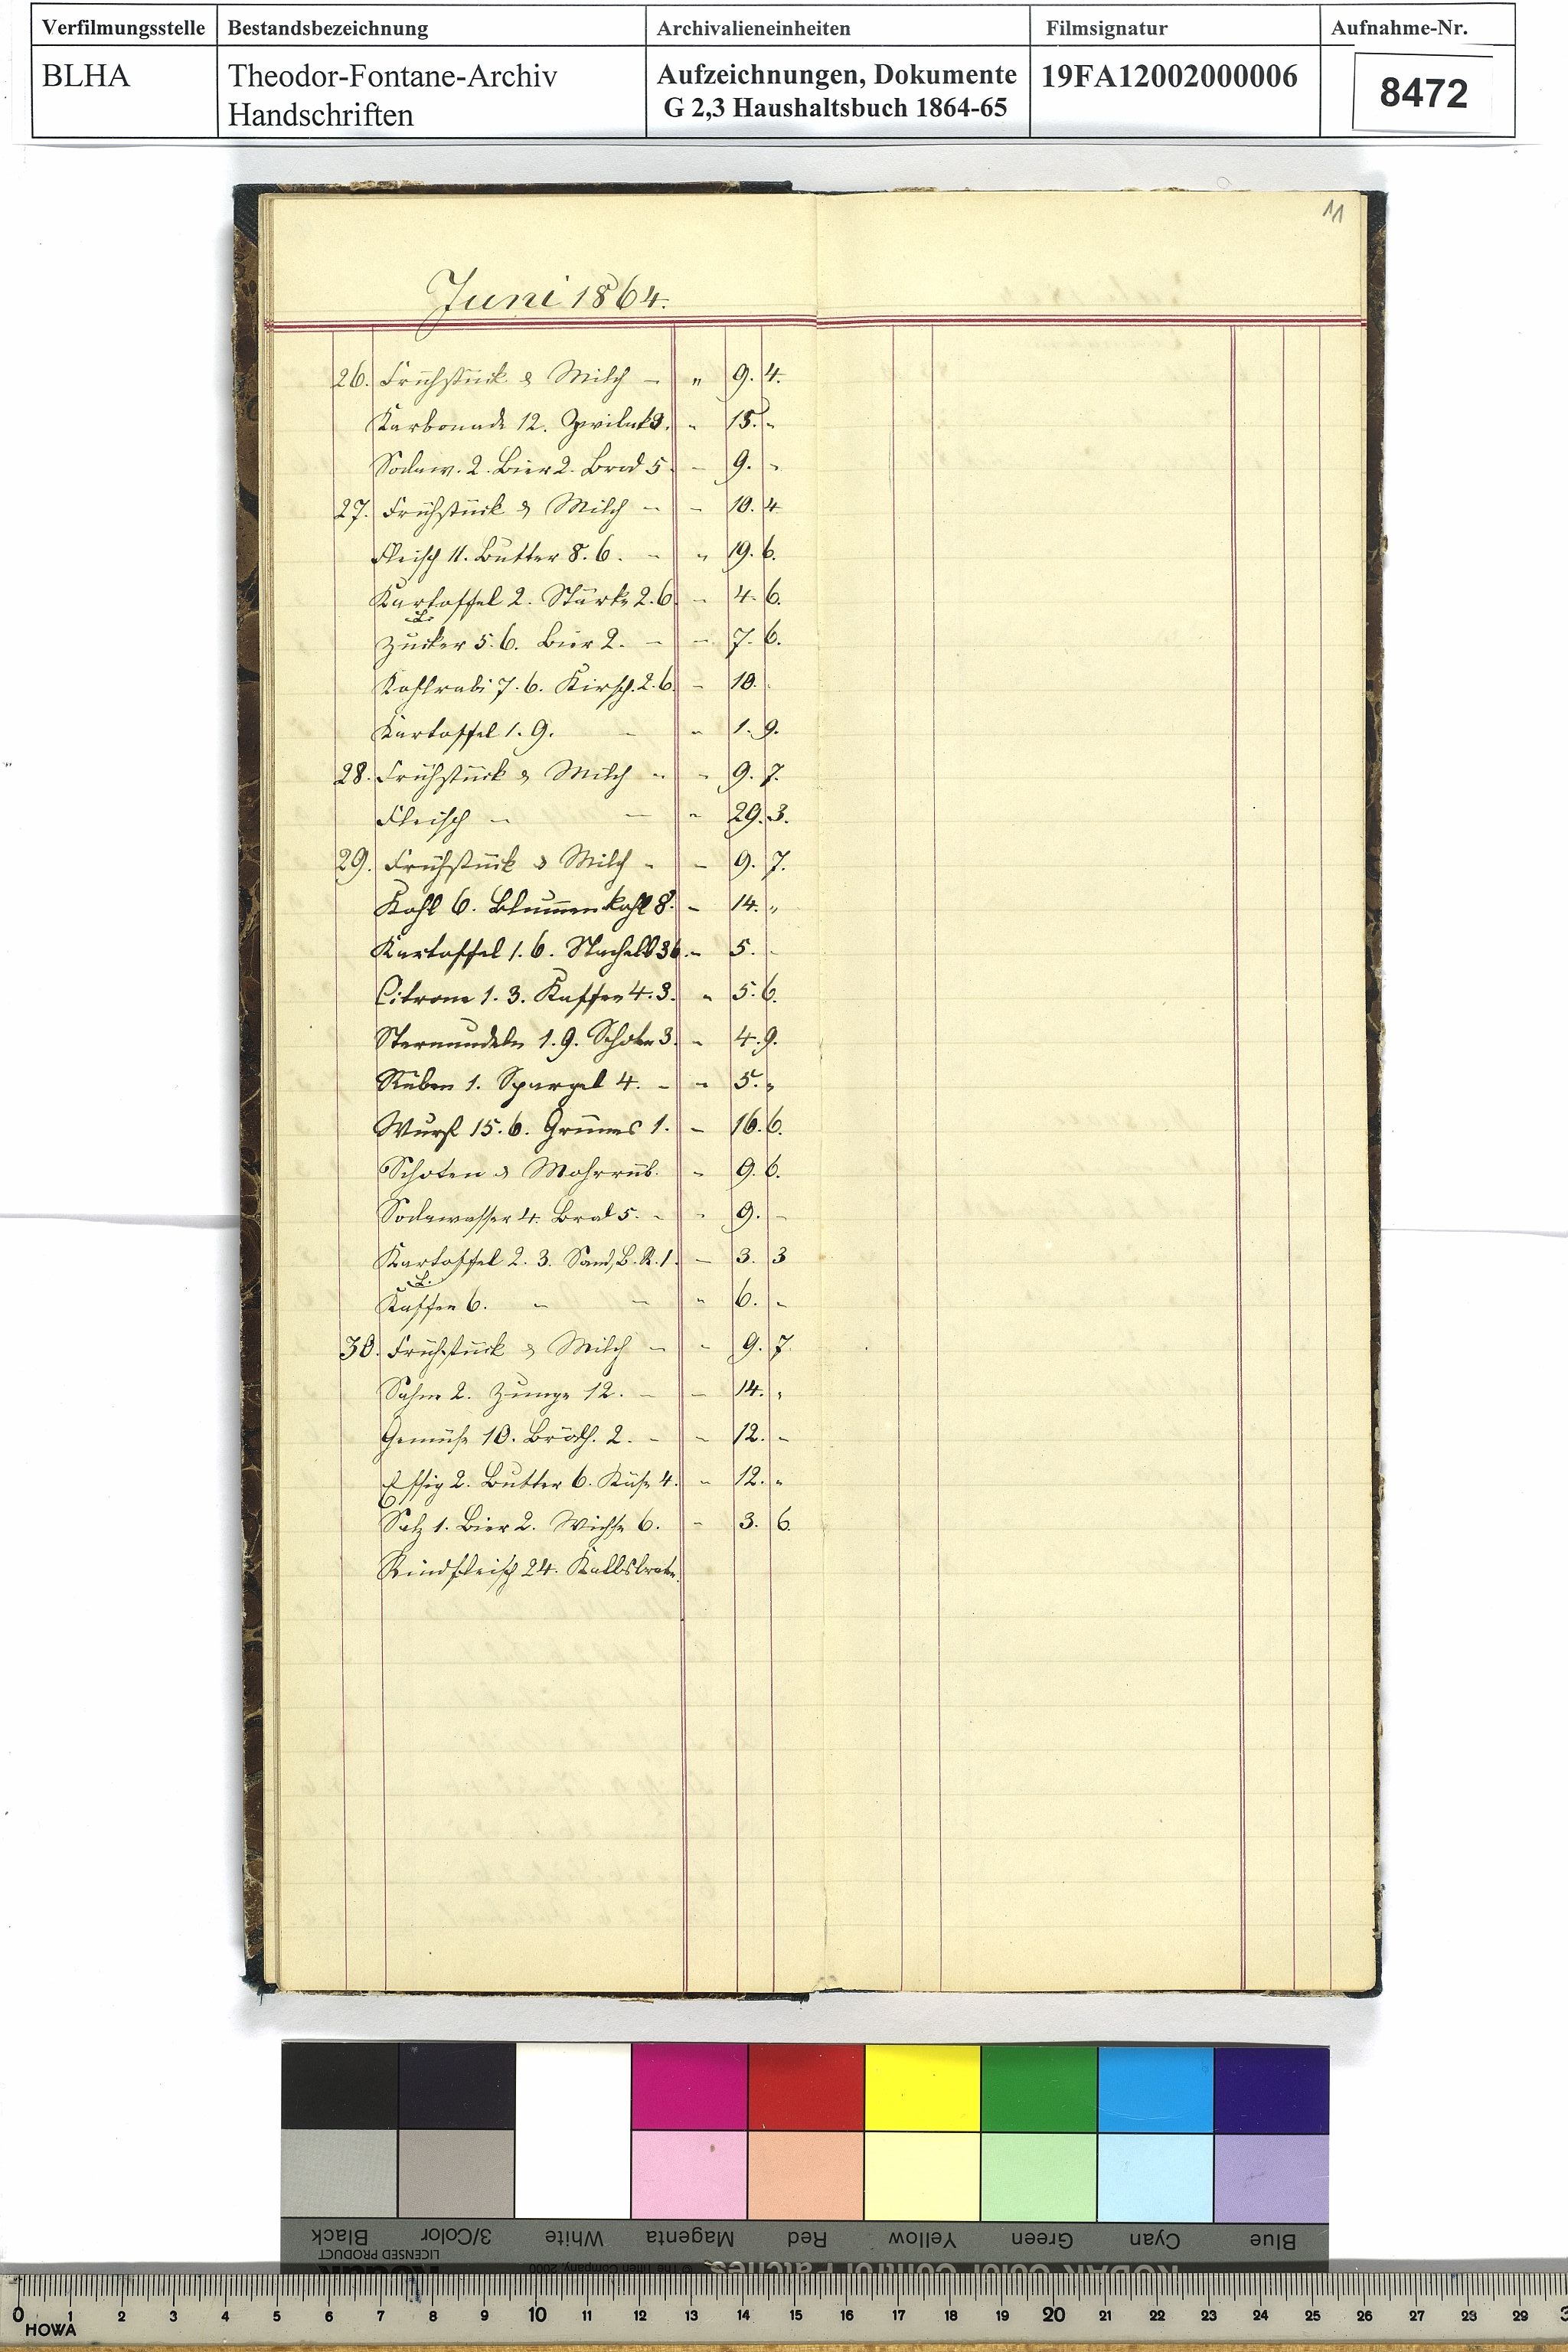 Verfilmungsstelle Bestandsbezeichnung Archivalieneinheiten Filmsignatur Aufnahme-Nr.
BLHA Theodor-Fontane-Archiv Handschriften Aufzeichnungen, Dokumente G 2,3 Haushaltsbuch 1864-65 19FA12002000006 8472
11
Juni 1864.
26. Frühstück & Milch – " 9. 4.
Karbonade 12. 3. " 15. "
Sodaw. 2. Bier 2. Brod 5. – 9. "
27. Frühstück & Milch – – 10. 4
Fleisch 11. Butter 8. 6. – " 19. 6.
Kartoffel 2. Stärke 2. 6. – 4. 6.
Zucker 5. 6. Bier 2. – – 7. 6.
Kohlrabi 7. 6. Kirsch. 2. 6. – 10.
Kartoffel 1. 9. – " 1. 9.
28. Frühstück & Milch – " 9. 7.
Fleisch – – " 29. 3.
29. Frühstück & Milch – – 9. 7.
Kohl 6. Blumenkohl 8. – 14. "
Kartoffel 1. 6. Stachelb 36. – 5. –
Citrone 1. 3. Kaffee 4. 3. " 5. 6.
Sternnudeln 1. 9. Schoten 3. – 4. 9.
Rüben 1. Spargel 4. – – 5. "
Wurst 15. 6. Grünes 1. – 16. 6.
Schoten & Mohrrüb. – 9. 6.
Sodawasser 4. Brod 5. – " 9. –
Kartoffel 2. 3. Sand, B. R. 1. – 3. 3
Kaffee 6. – – " 6. –
30. Frühstück & Milch – – 9. 7.
Sahne 2. Zunge 12. – – 14. "
Gemüse 10. Brödch. 2. – – 12. –
Essig 2. Butter 6. Käse 4. – 12. "
Salz 1. Bier 2. Wichse 6. – 3. 6.
Rindfleisch 24. Kalbsbraten.
Blue Cyan Green Yellow Red Magenta White 3/Color Black
LICENSED PRODUCT
KODAK Color Control Patches
0 1 2 3 4 5 6 7 8 9 10 11 12 13 14 15 16 17 18 19 20 21 22 23 24 25 26 27 28 29 3
HOWA